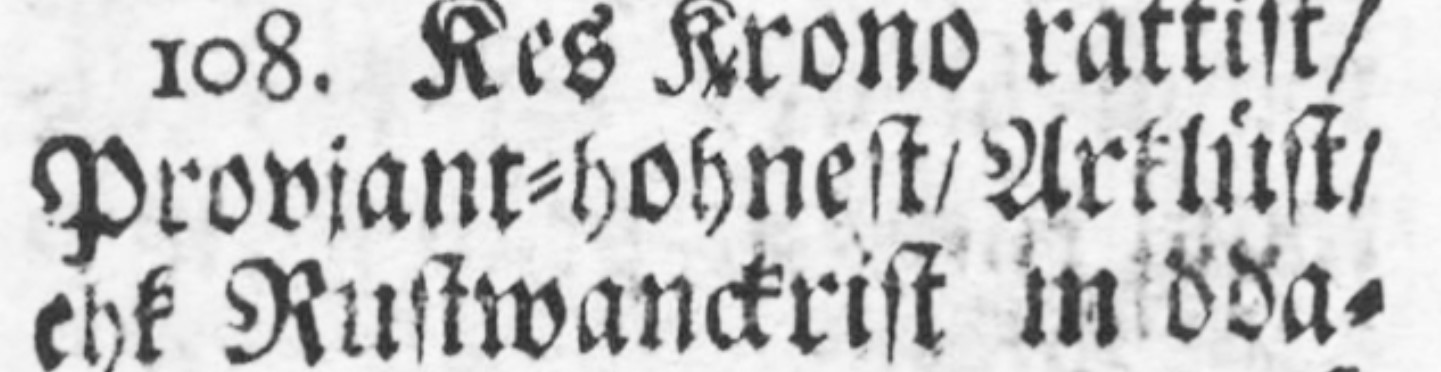 108. Kes Krono rattiſt/
Provjant-hohneſt/ Arkliiſt/
ehk Ruſtwanckriſt m öda-